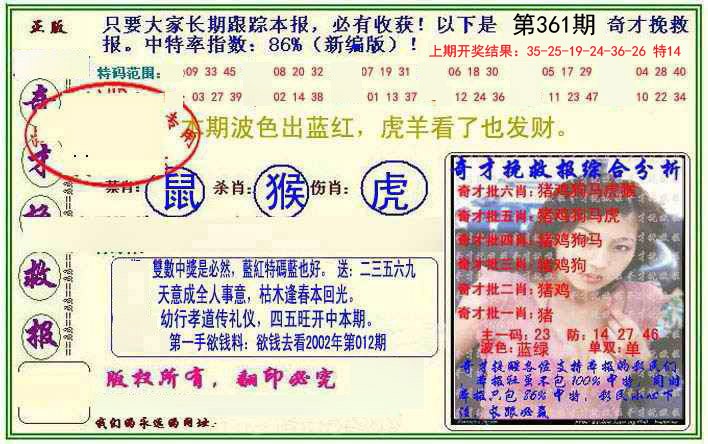 正版
只要大家长期跟踪本报，必有收获！以下是 第361期 奇才挽救
报。中特率指数：86%（新编版）！
上期开奖结果：35-25-19-24-36-26 特14
特码范围：
09 33 45 08 20 32 07 19 31 06 18 30 05 17 29 04 28 40
03 27 39 02 14 38 01 13 37 12 24 36 11 23 47 10 22 34
本期波色出蓝红，虎羊看了也发财。
鼠 杀肖：猴 伤肖：虎
奇
才
救
报
雙數中獎是必然，藍紅特碼藍也好。 送：二三五六九
天意成全人事意，枯木逢春本回光。
幼行孝道传礼仪，四五旺开中本期。
第一手欲钱料：欲钱去看2002年第012期
版权所有，翻印必究
我们的永远的网址：
奇才挽救报综合分析
奇才批六肖：猪鸡狗马虎猴
奇才批五肖：猪鸡狗马虎
奇才批四肖：猪鸡狗马
奇才批三肖：猪鸡狗
奇才批二肖：猪鸡
奇才批一肖：猪
主一码：23 防：14 27 46
波色：蓝绿 单双：单